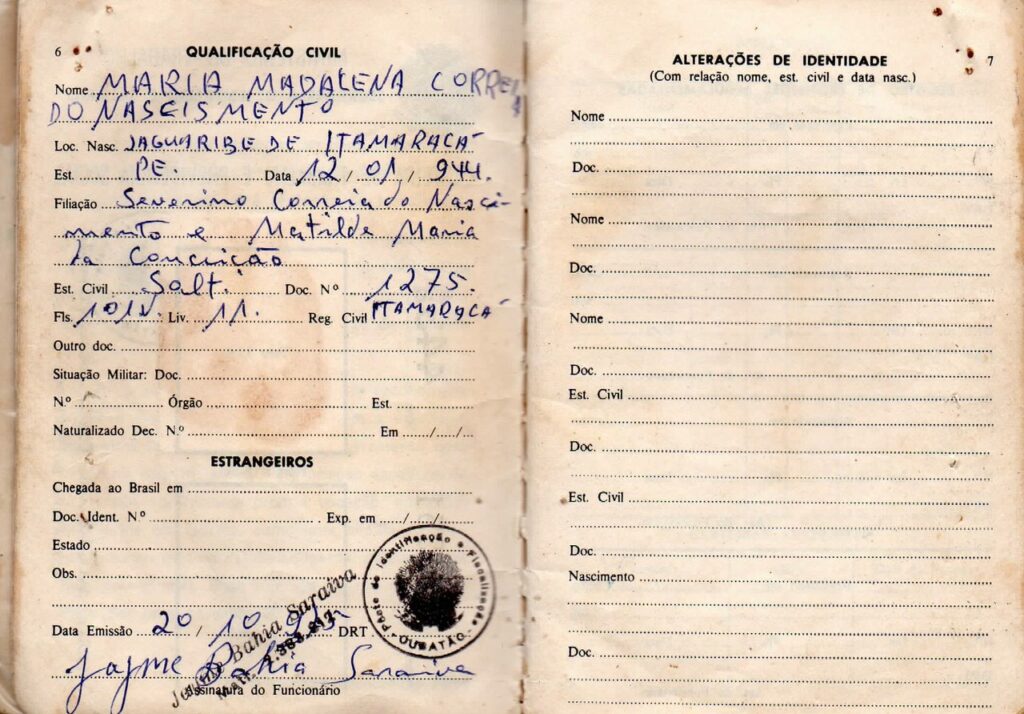 6
QUALIFICAÇÃO CIVIL
Nome MARIA MADALENA CORREIA
DO NASCISMENTO
Loc. Nasc. JAGUARIBE DE ITAMARACÁ
Est. PE. Data 12/01/944.
Filiação Severino Correia do Nasci-
mento e Matilde Maria
da Conceição
Est. Civil Solt. Doc. Nº 1275.
Fls. 101v. Liv. 11. Reg. Civil ITAMARACÁ
Outro doc.
Situação Militar: Doc.
N.º Órgão Est.
Naturalizado Dec. N.º Em / /
ESTRANGEIROS
Chegada ao Brasil em
Doc. Ident. N.º Exp. em / /
Estado
Obs.
Data Emissão 20 / 10 DRT
Jayme Bahia Saraiva
Assinatura do Funcionário
Jayme Bahia Saraiva
Matr.
Posto de Identificação e Fiscalização
CUBATÃO
7
ALTERAÇÕES DE IDENTIDADE
(Com relação nome, est. civil e data nasc.)
Nome
Doc.
Nome
Doc.
Nome
Doc.
Est. Civil
Doc.
Est. Civil
Doc.
Nascimento
Doc.